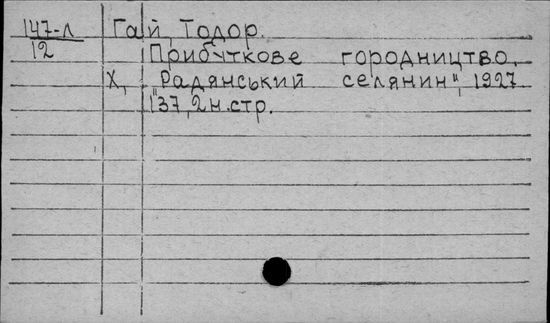 147-л Гай, Тодор.
12 Прибуткове городництво.
Х, "Радянський селянин", 1927
137, 2 н.стр.